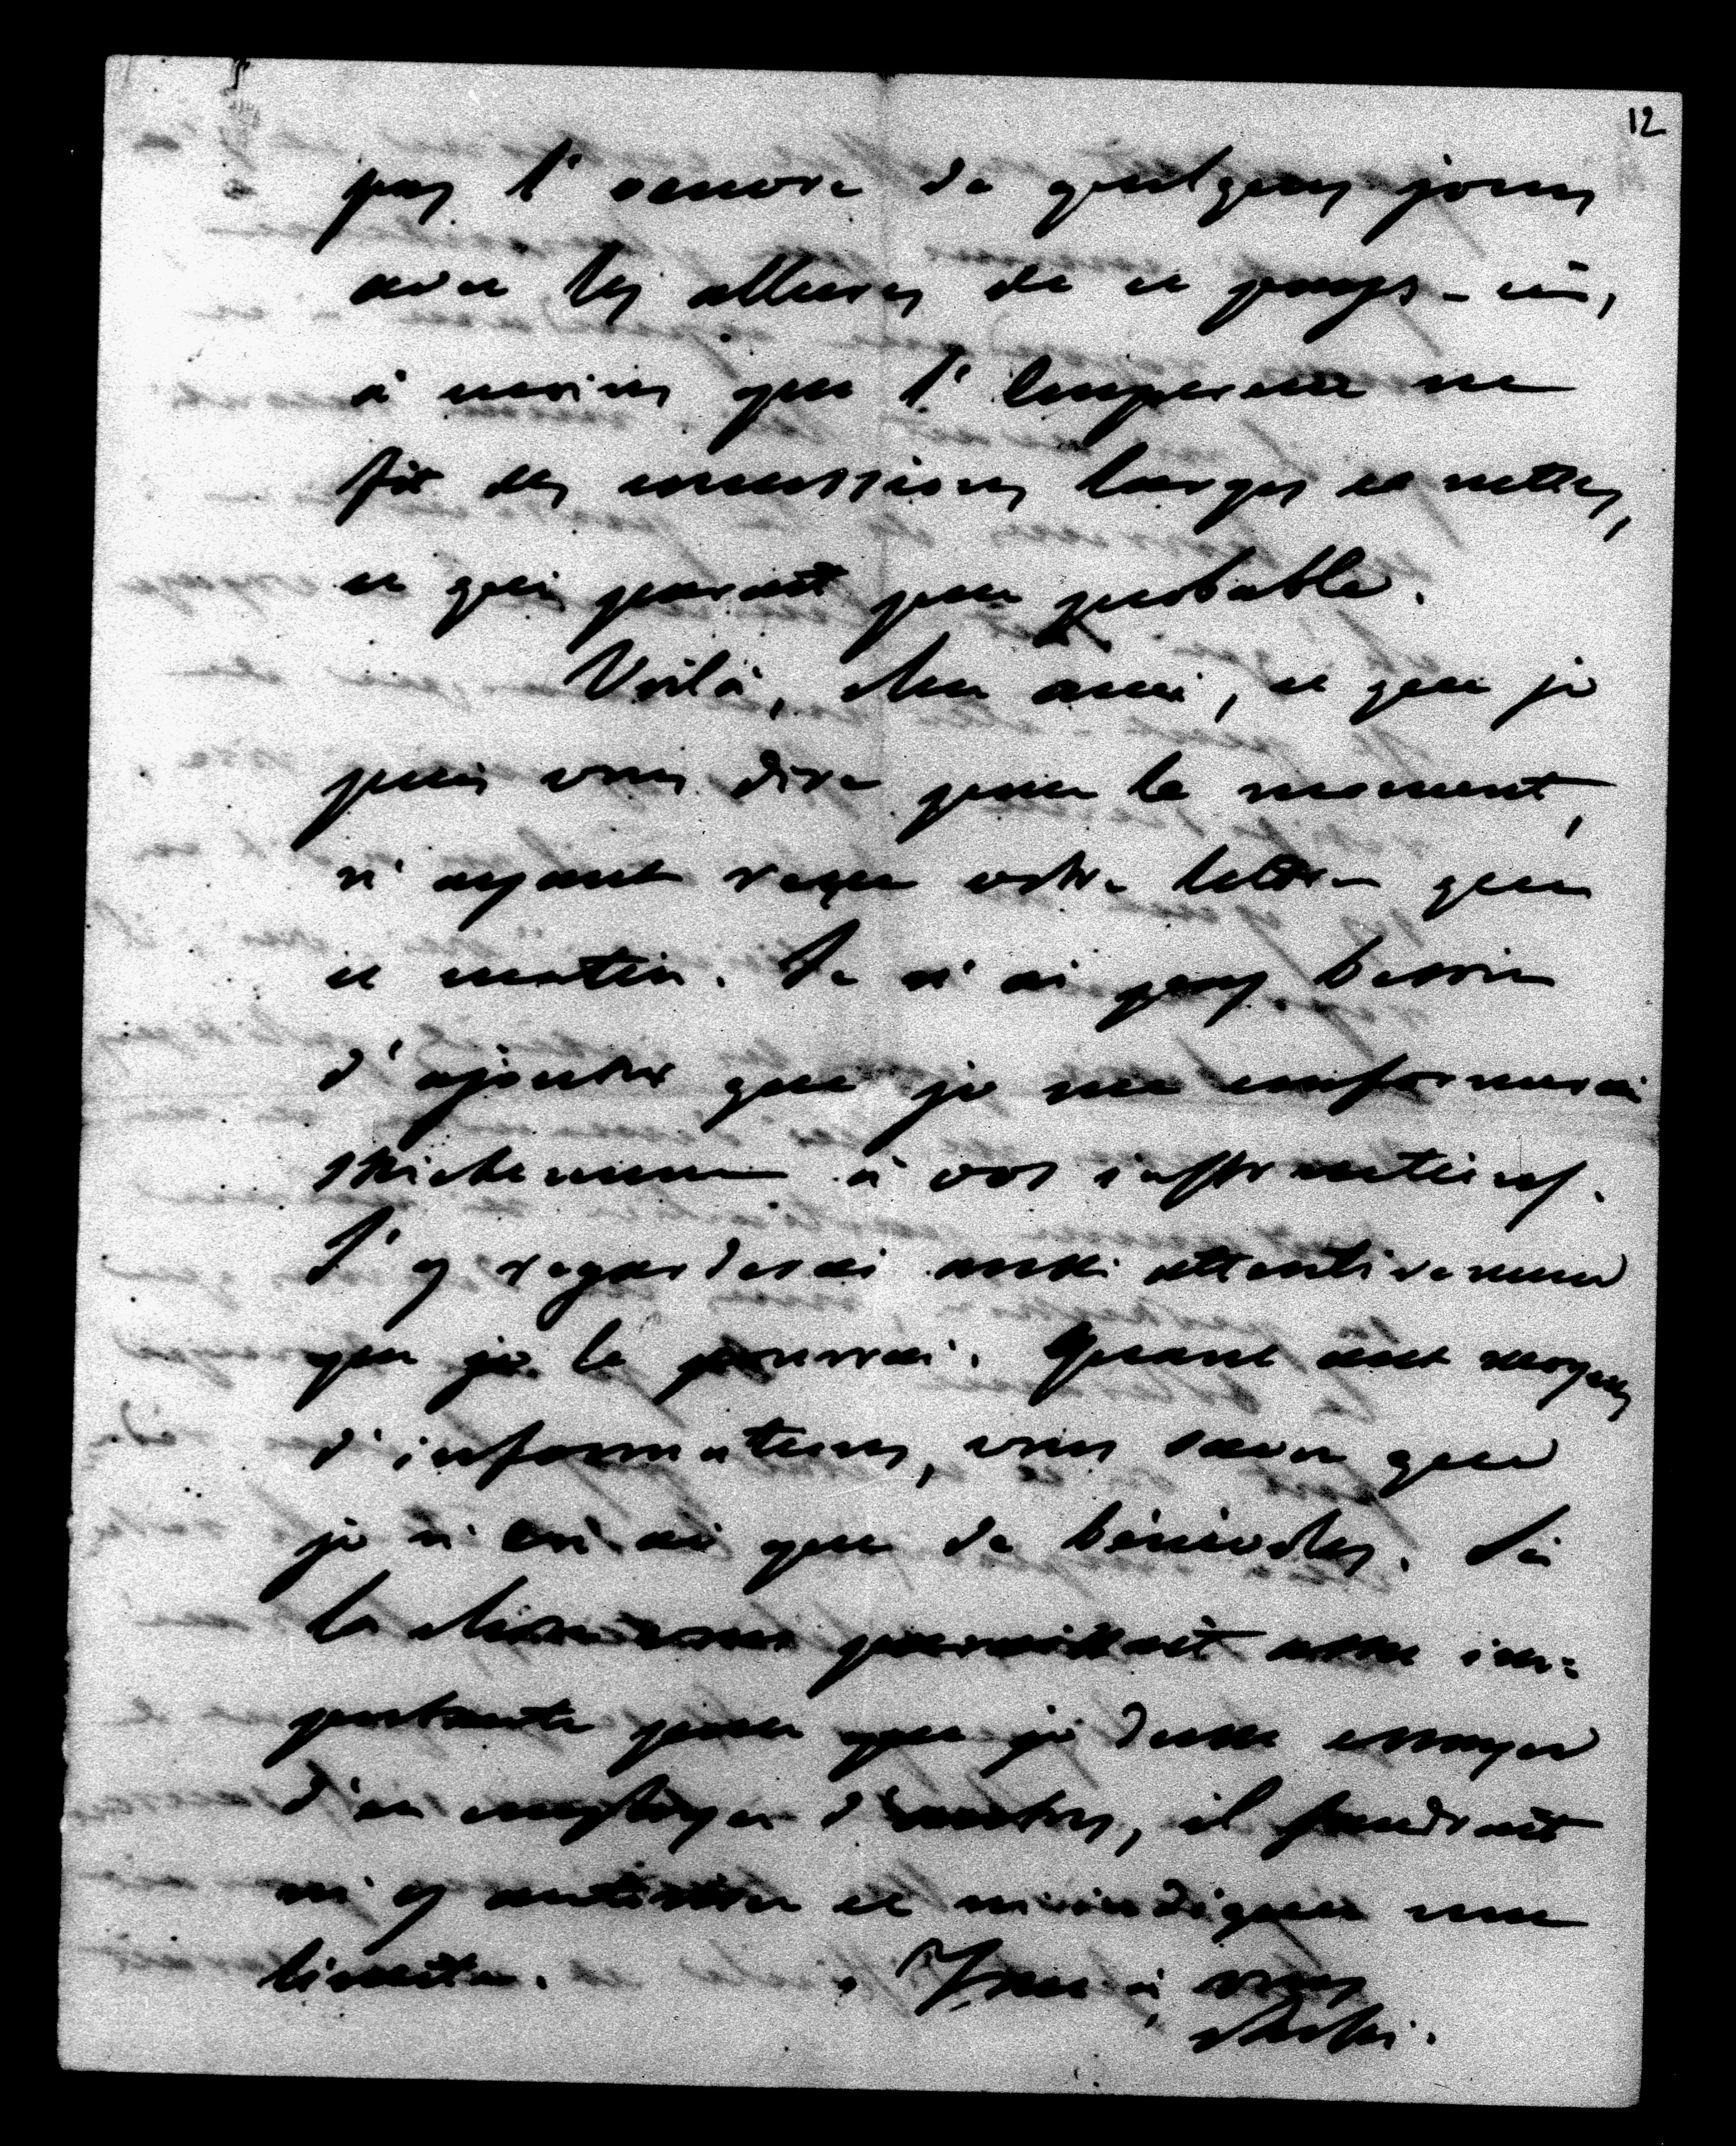 12
pas l'œuvre de quelques jours
avec les allures de ce pays-ci,
à moins que l'Empereur ne
fît des concessions larges et nettes,
ce qui paraît peu probable.
Voilà, cher ami, ce que je
puis vous dire pour le moment,
n'ayant reçu votre lettre que
ce matin. Je n'ai pas besoin
d'ajouter que je me conformerai
strictement à vos instructions.
J'y regarderai aussi attentivement
que je le pourrai. Quant aux moyens
d'informations, vous savez que
je n'en ai que de bénévoles. Si
la chose vous paraissait assez im=
portante pour que je dusse essayer
d'en employer d'autres, il faudrait
m'y autoriser et m'indiquer une
limite. Tout à vous